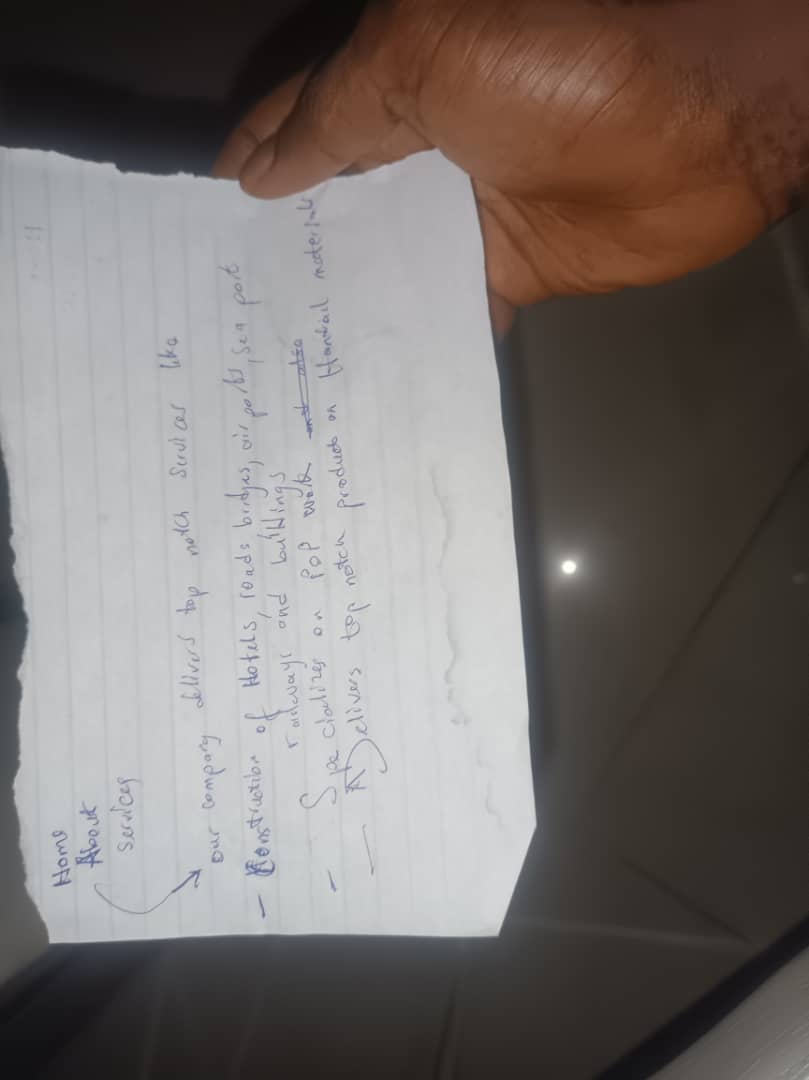 Home
About
Services
our company delivers top notch services like
- Construction of Hotels, roads bridges, air ports, sea port
railways and buildings
- Specializes on POP work
- Delivers top notch products on Handrail materials